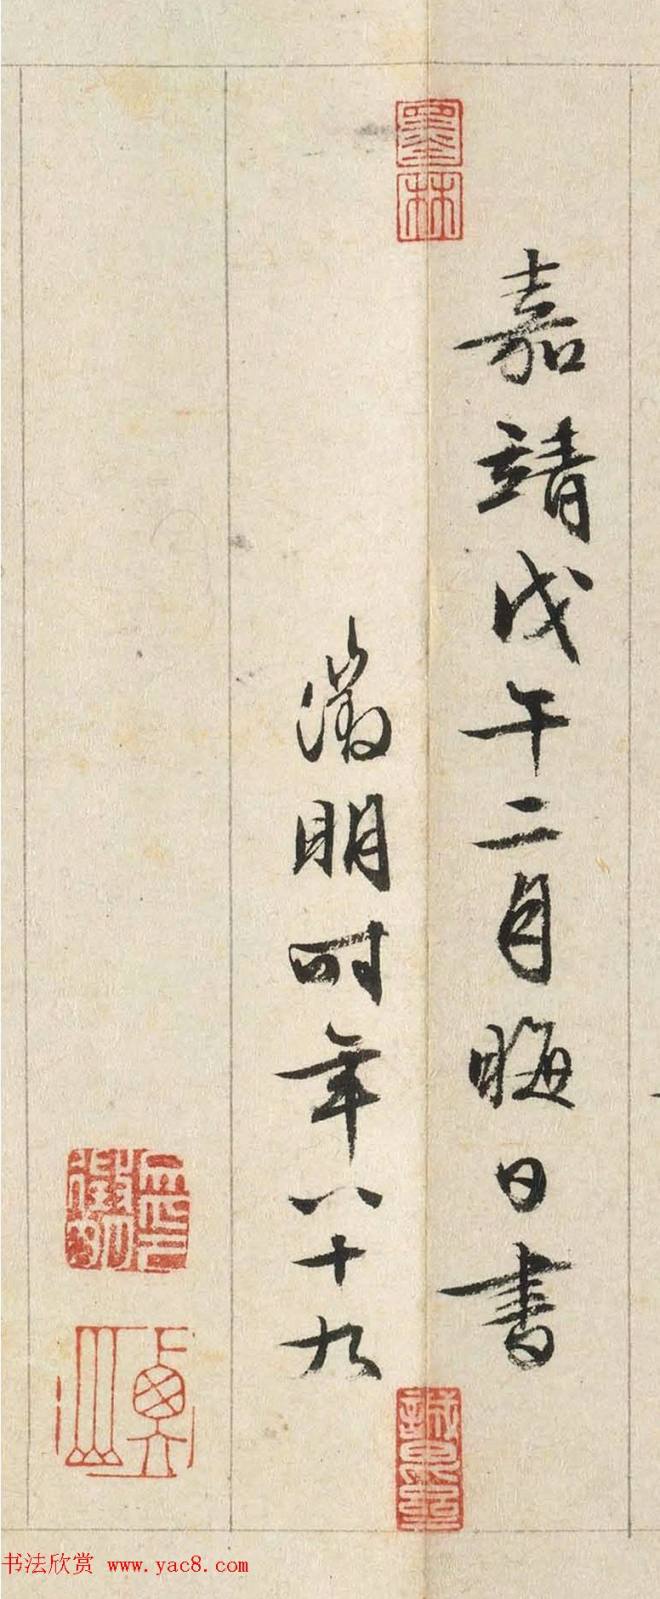 嘉靖戊午二月晦日書
徵明時年八十九
墨林
書法欣赏 www.yac8.com